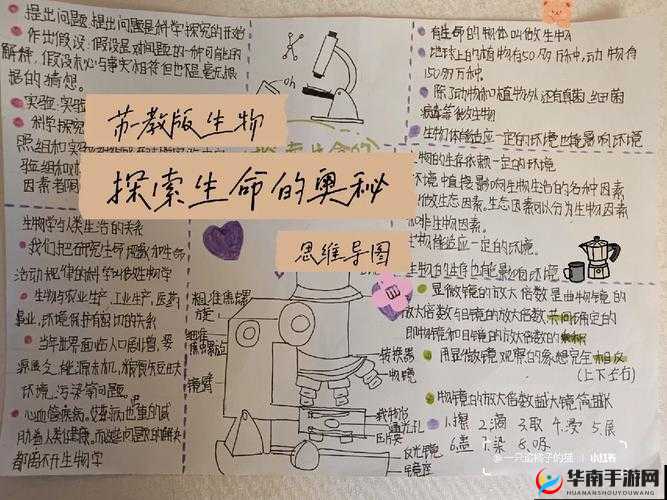 提出问题:提出问题是科学探究的开始
作出假设:假设是对问题的一种可能的
解释,假设未必与事实相符但也是毫无根
据的猜想。
实验:实验
科学探究
照组和实
验组和
因素者同
苏教版生物
探索生命的奥秘
思维导图
有生命的物体叫做生物
地球上的植物有50多万种,动物有
150多万种。
除了动物和植物外还有真菌、细菌
病毒等微生物
生物体能适应一定的环境也能影响环境
物的生存依赖一定的环境
环境中直接影响生物生活的各种因素
做生态因素。生态因素可以分为生物因素
和非生物因素。
生物能适应一定的环境。
生物的生存也能影响环境
显微镜的放大倍数是由物镜的
放大倍数与目镜的放大倍数共同确定的
即物镜和目镜的放大倍数的乘积
用显微镜观察的象想完全相反
(上下左右)
物镜的放大倍数越大镜筒越长
1.擦 2.滴 3.取 4.浸 5.展
6.盖 7.染 8.吸
生物学与人类生活的关系
我们把研究生命现象和生命
活动规律的科学叫做生物学
生物与农业生产、工业生产、医药
事业,环境保护有密切的关系
当年世界面临人口剧增、资
源匮乏、能源危机、粮食不足
环境污染等问题。
心血管疾病、艾滋病也重的威
胁着人类健康,而这些问题的解决
都离不开生物学
粗准焦螺
旋
细准
焦螺旋
镜臂
转换器
物镜
载物台
通光孔
压片夹
反光镜
镜座
小红书
华南手游网
HUANANSHOUYOUWANG